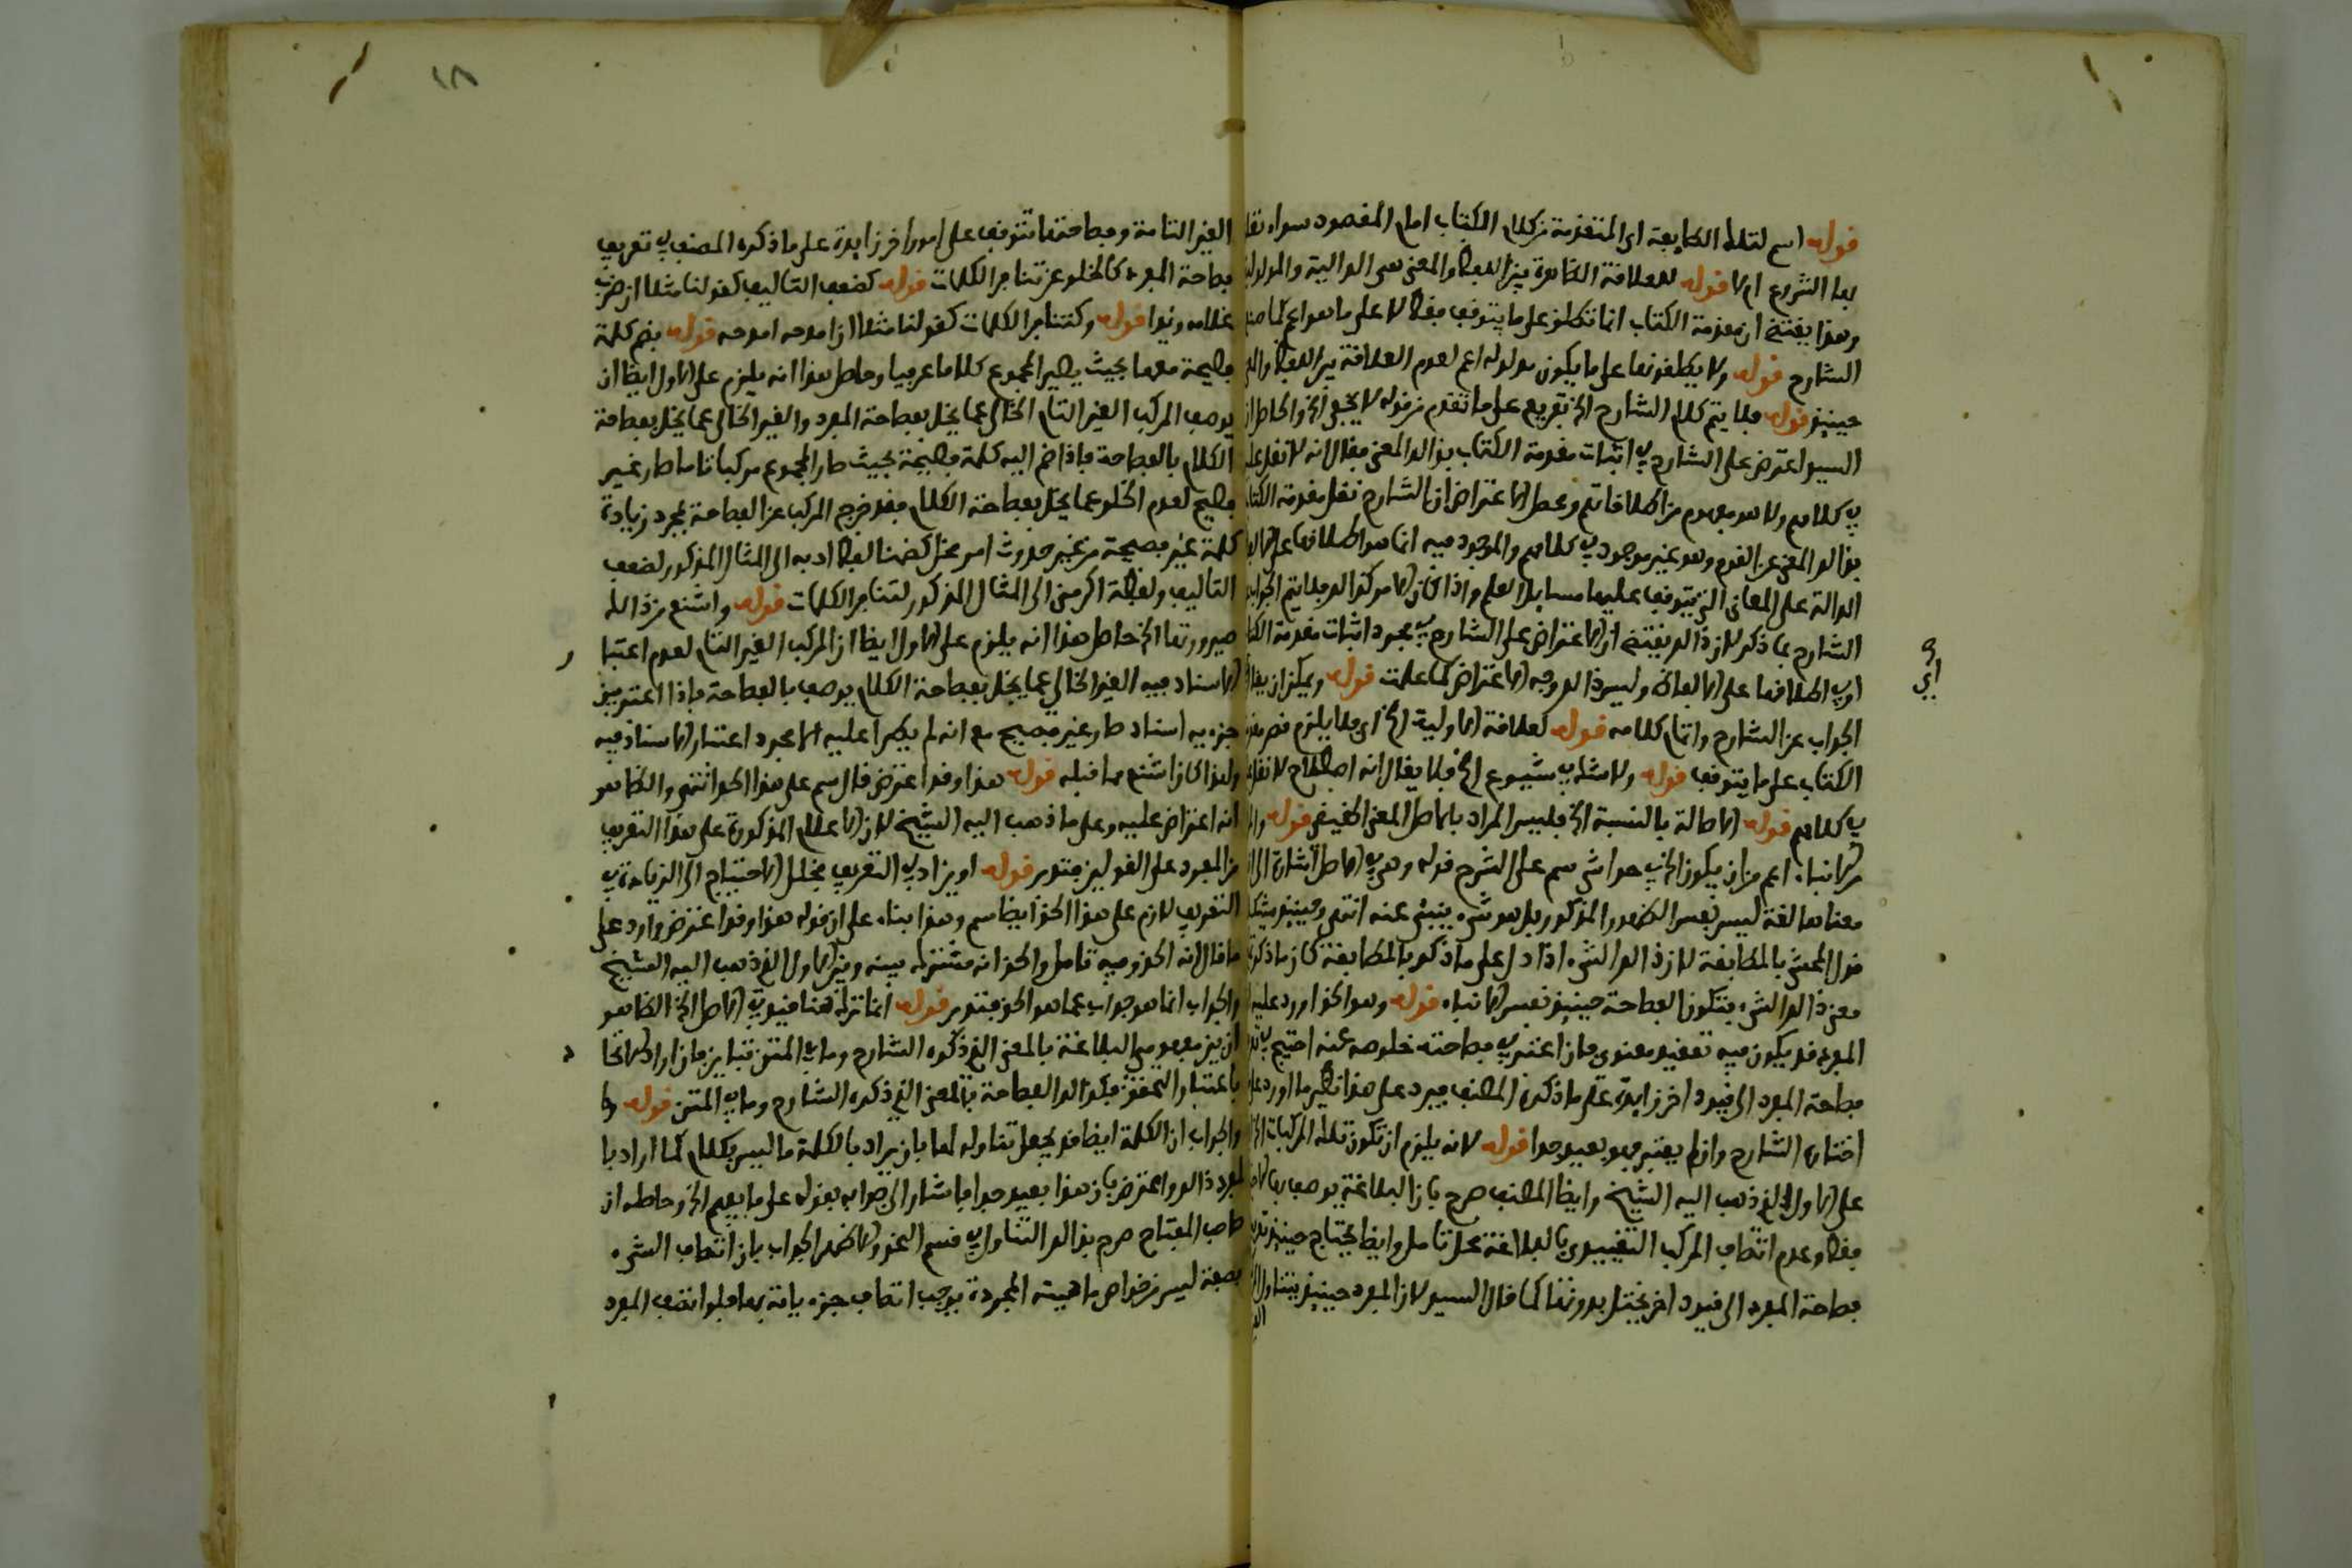 قوله اسم لتلك الطايفة اى المتقدمة من كلام الكتاب امام المقصود سواء
بها الشروع ام لا قوله للعلاقة الظاهرة بين اللفظ والمعنى هى الدالية والمدلولية
وهذا يقتضى ان مقدمة الكتاب انما تطلق على ما يتوقف فقط لا على ما هو اعم كما
الشارح قوله ولا يطلقونها على ما يكون مدلوله اعم لعدم العلاقة بين اللفظ
حينئذ قوله فلا يتم كلام الشارح الخ تفريع على ما تقدم من قوله لا يخفى الخ والحاصل ان
السيد اعترض على الشارح في اثبات مقدمة الكتاب بذالك المعنى فقال انه لا نقل عليه
في كلامهم ولا هو مفهوم من اطلاقاتهم ومحصل الاعتراض ان الشارح نقل مقدمة الكتاب
بذالك المعنى عن القوم وهو غير موجود في كلامهم والموجود فيه انما هو اطلاقها على
الدالة على المعانى التى يتوقف عليها مسايل العلم واذا كان الامر كذالك فلا يتم الجواب
الشارح بما ذكر لان ذالك يقتضى ان الاعتراض على الشارح في مجرد اثبات مقدمة
او في اطلاقها على الالفاظ وليس ذالك وجه الاعتراض كما علمت قوله ويمكن ان يقال
اي
الجواب عن الشارح واتمام كلامه قوله لعلاقة الاولية الخ اى فلا يلزم
الكتاب على ما يتوقف قوله ولا شك في شيوع الخ فلا يقال انه اصطلاح لا نقل
في كلامهم قوله الاصالة بالنسبة الخ فليس المراد بالاصل المعنى الحقيقى قوله
الانباء اعم من ان يكون الخ في حواشى سم على الشرح قوله وهى في الاصل اشارة الى
معناها لغة ليس نفس الظهور المذكور بل هو شىء ينبئ عنه انتهى وحينئذ
قول المحشى بالمطابقة لان ذالك الشىء اذا دل على ما ذكر بالمطابقة كان ما ذكر
معنى ذالك الشىء فتكون الفصاحة حينئذ نفس الانباء قوله وهو الحق اورد عليه
المفرد قد يكون فيه تعقيد معنوى فان اعتبر في فصاحته خلوصه عنه احتيج في
فصاحة المفرد الى قيود اخر زايدة على ما ذكره المصنف فيرد على هذا نظير ما اورد على
اختاره الشارح وان لم يعتبر فهو بعيد جدا قوله لانه يلزم ان تكون تلك المركبات
على الاول الذى ذهب اليه الشيخ وايضا المصنف صرح بان البلاغة يوصف بها
فقط وعدم اتصاف المركب التقييدى بالبلاغة محل تامل وايضا يحتاج حينئذ
فصاحة المفرد الى قيود اخر يختل بدونها كما قال السيد لان المفرد حينئذ يتناول
١٨
الغير التامة وفصاحتها تتوقف على امور اخر زايدة على ما ذكره المصنف في تعريف
فصاحة المفرد كالخلو عن تنافر الكلمات قوله كضعف التاليف كقولنا مثلا ان ضرب
غلامه زيدا قوله وكتنافر الكلمات كقولنا مثلا اذا امدحه امدحه قوله بضم كلمة
فصيحة معها بحيث يصير المجموع كلاما عربيا وحاصل هذا انه يلزم على الاول ايضا ان
يوصف المركب الغير التام الخالى عما يخل بفصاحة المفرد والغير الخالى عما يخل بفصاحة
الكلام بالفصاحة فاذا ضم اليه كلمة فصيحة بحيث صار المجموع مركبا تاما صار غير
فصيح لعدم الخلو عما يخل بفصاحة الكلام فقد خرج المركب عن الفصاحة بمجرد زيادة
كلمة غير فصيحة من غير حدوث امر مخل كضمنا لفظ ادبه الى المثال المذكور لضعف
التاليف ولفظة اكرمنى الى المثال المذكور لتنافر الكلمات قوله واشنع من ذالك
صيرورتها الخ حاصل هذا انه يلزم على الاول ايضا ان المركب الغير التام لعدم اعتبار
الاسناد فيه الغير الخالى عما يخل بفصاحة الكلام يوصف بالفصاحة فاذا اعتبر بين
جزءيه اسناد صار غير فصيح مع انه لم يطرا عليه الا مجرد اعتبار الاسناد فيه
ولهذا كان اشنع مما قبله قوله هذا وقد اعترض قال سم على هذا الحق انتهى والظاهر
انه اعتراض عليه وعلى ما ذهب اليه الشيخ لان الاعلام المذكورة على هذا التعريف
من المفرد على القولين فتدبر قوله او يزاد في التعريف مخلل الاحتياج الى الزيادة في
التعريف لازم على هذا الحق ايضا سم وهذا بناء على ان قوله هذا وقد اعترض وارد على
ما قال انه الحق وفيه تامل والحق انه مشترك بينه وبين الاول الذى ذهب اليه الشيخ
والجواب انما هو جواب عما هو الحق فتدبر قوله انما ترك هنا قيد في الاصل الخ الظاهر
ان بين مفهومى البلاغة بالمعنى الذى ذكره الشارح وما في المتن تباين فان اراد الاتحاد
باعتبار التحقق فكذالك الفصاحة بالمعنى الذى ذكره الشارح وما في المتن قوله
والجواب ان الكلمة ايضا قد يجعل تناوله لها بان يراد بالكلمة ما ليس بكلام كما اراد
المفرد ذالك واعترض بان هذا بعيد جدا فاشار الى جوابه بقوله على ما يفهم الخ وحاصله ان
صاحب المفتاح صرح بذالك التناول في قسم النحو والاظهر الجواب بان اتصاف الشىء
بصفة ليس من خواص ماهيته المجردة يوجب اتصاف جزءياته بها فلو اتصف المفرد